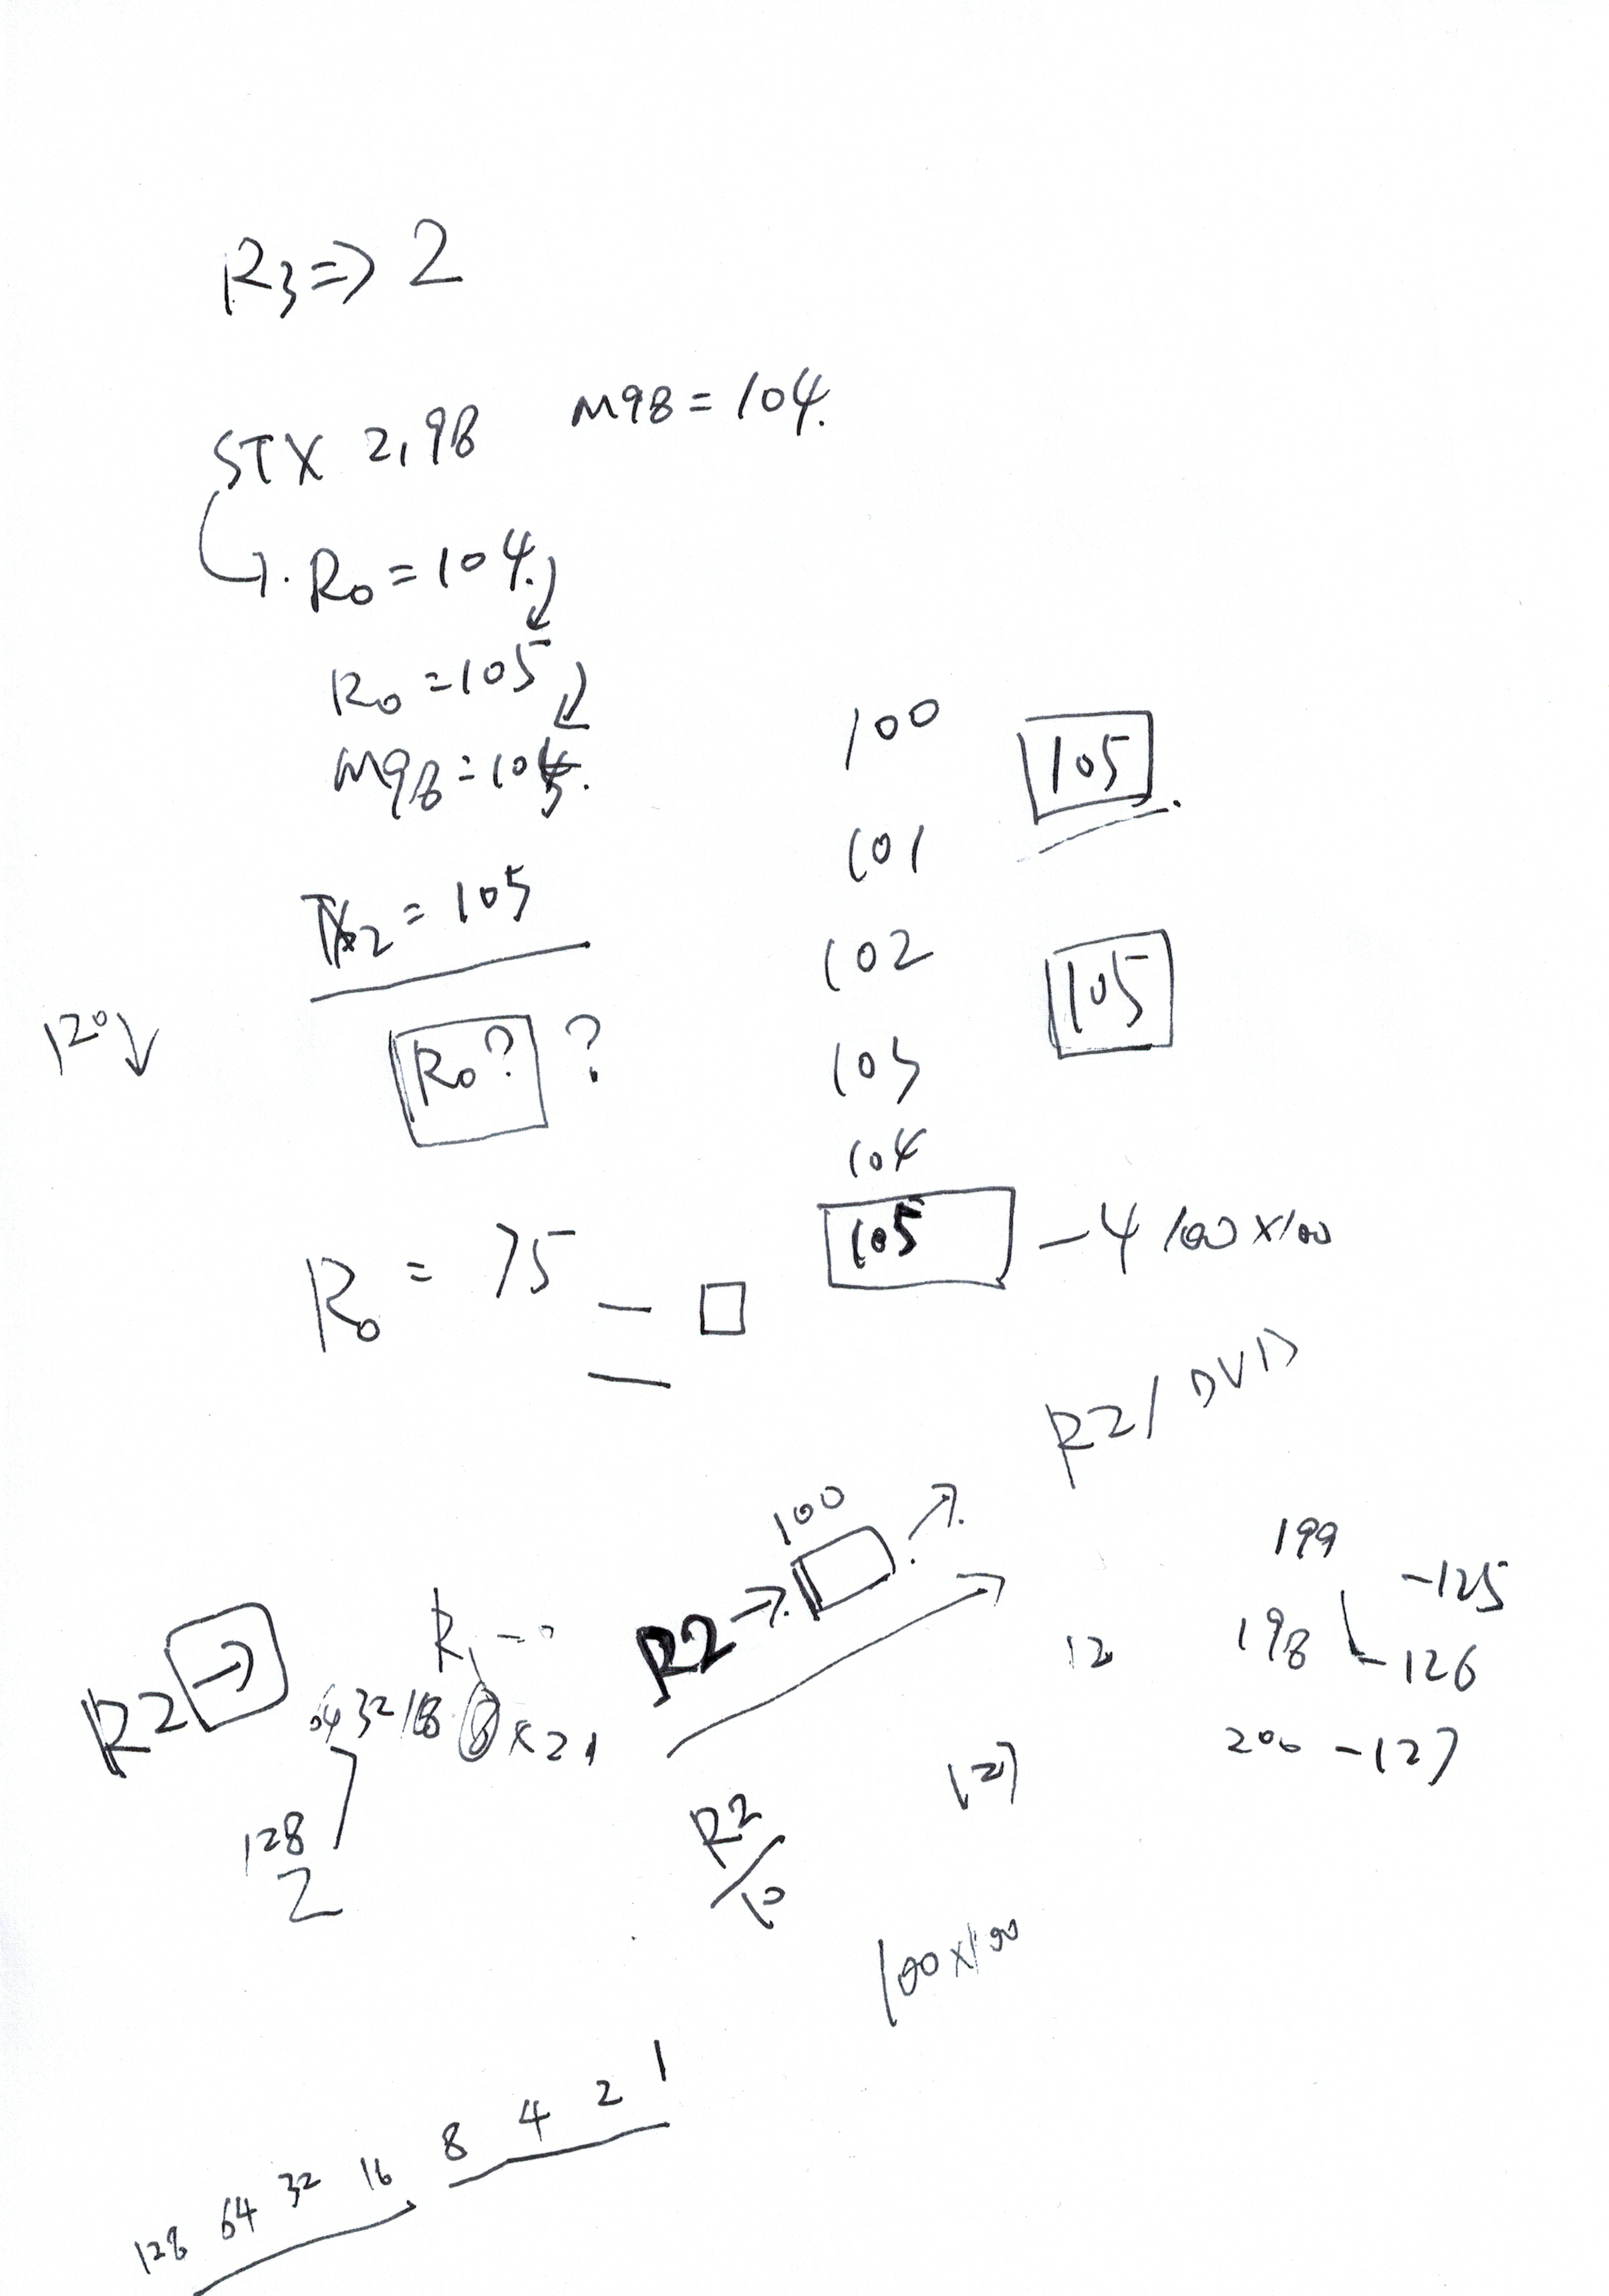 R3 => 2
STX 2,98 M98 = 104.
R0 = 104.
R0 = 105
M98 = 105.
= 105
120
R0? ?
R0 = 75 —
100 105
101
102 105
103
104
105 - 4 100 x 100
R2 / DVD
100
R2 →
R2 →
R1
64 32 16 8 x 2 1
128
2
R2
/ 10
12
127
199
-125
198 - 126
200 - 127
100 x 100
128 64 32 16 8 4 2 1